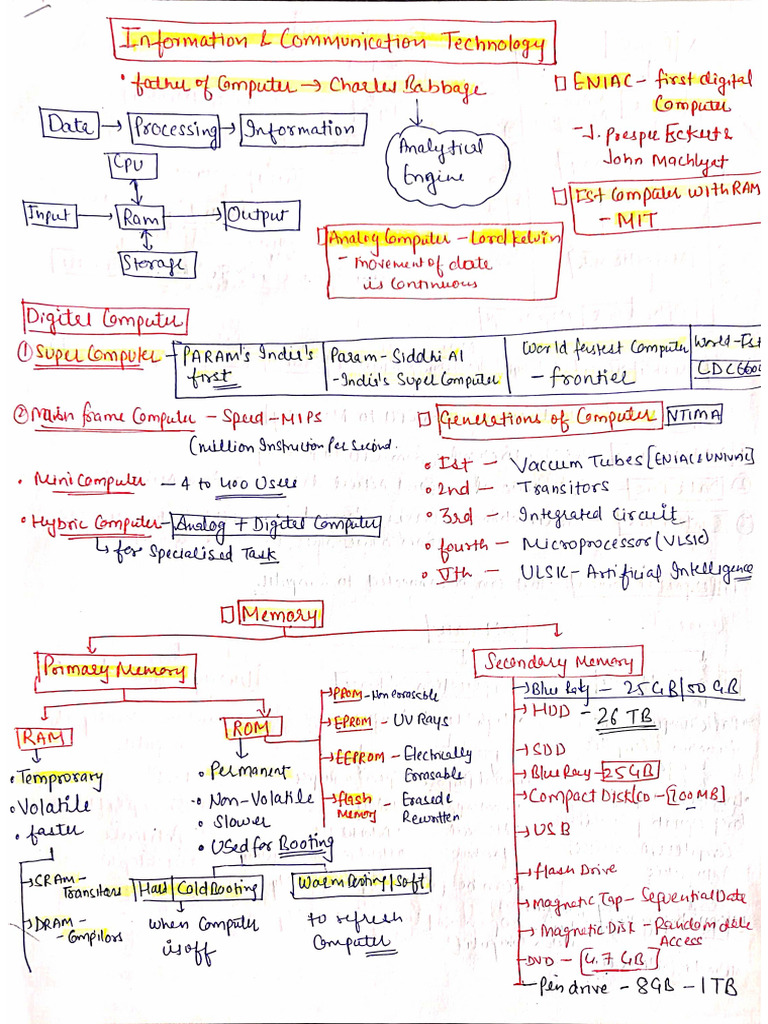 Information & Communication Technology
• father of Computer → Charles Babbage
Data → Processing → Information
Analytical
Engine
□ ENIAC - first digital
Computer
- J. Presper Eckert &
John Machlyat
□ Ist Computer with RAM
- MIT
CPU
Input → Ram → Output
Storage
□ Analog Computer - Lord Kelvin
- movement of data
is continuous
Digital Computer
① Super Computer - PARAM's India's
first
Param - Siddhi AI
- India's Super Computer
World fastest Computer
- frontier
World - Ist
CDC6600
② Main frame Computer - Speed - MIPS
(million Instruction Per Second.
• Mini Computer - 4 to 400 Users
• Hybric Computer - Analog + Digital Computer
↳ for Specialised Task
□ Generations of Computer NTIMA
• Ist - Vaccum Tubes [ENIAC & UNIVAC]
• 2nd - Transitors
• 3rd - Integrated Circuit
• fourth - Microprocessor (VLSIC)
• Vth - ULSIC - Artificial Intelligence
□ Memory
Primary Memory
RAM
• Temprorary
• Volatile
• faster
→ SRAM - Transiters
→ DRAM - Compilors
ROM
• Permanent
• Non-Volatile
• Slower
• Used for Booting
Hard | Cold Booting
when Computer
is off
Warm Booting | Soft
to refresh
Computer
PROM - Non erasable
EPROM - UV Rays
EEPROM - Electrically
Erasable
flash
Memory - Erased &
Rewritten
Secondary Memory
→ Blue Ray - 25 GB | 50 GB
→ HDD - 26 TB
→ SDD
→ Blue Ray - 25 GB
→ Compact Disk (CD - [700 MB]
→ USB
→ flash Drive
→ Magnetic Tap - Sequential Data
→ Magnetic Disk - Random data
Access
→ DVD - [4.7 GB]
→ Pen drive - 8GB - 1TB